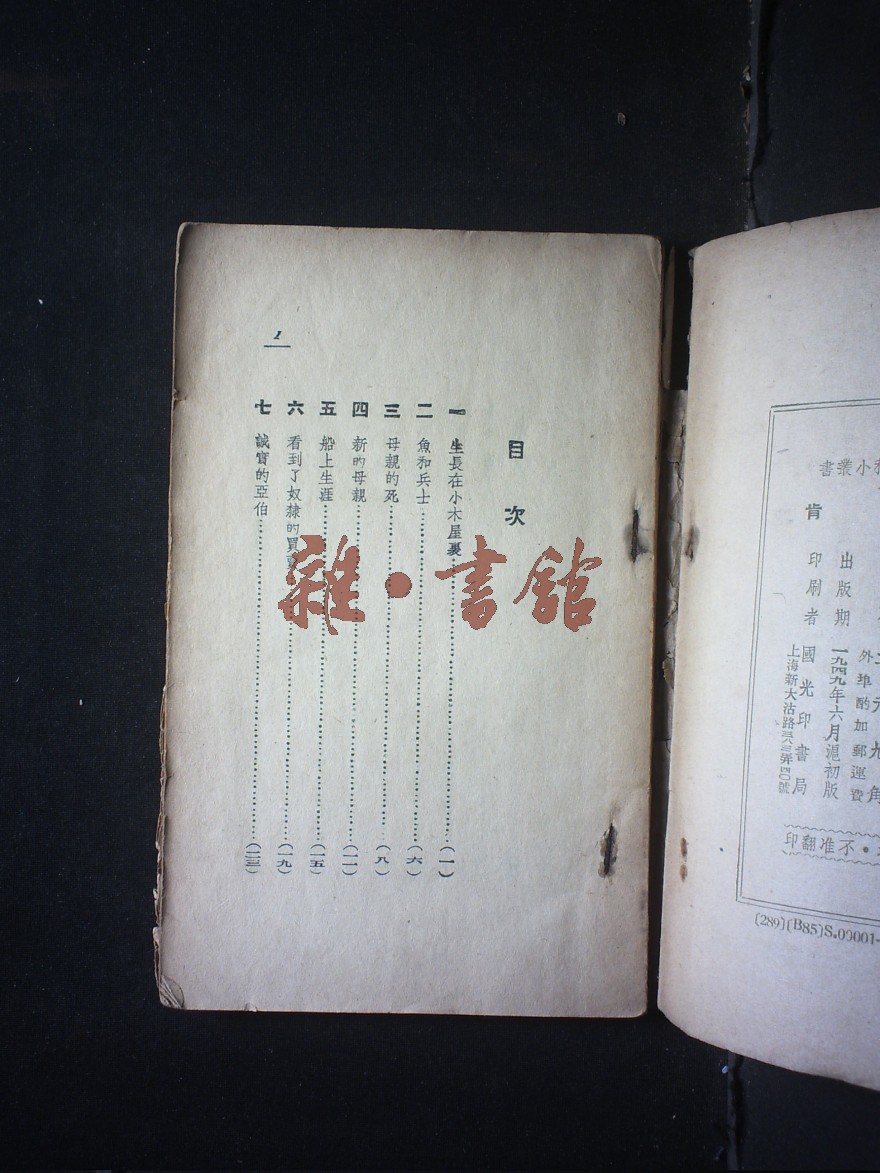 目次
一 生長在小木屋裏……(一)
二 魚和兵士……(六)
三 母親的死……(八)
四 新的母親……(一一)
五 船上生涯……(一五)
六 看到了奴隸的買賣……(一九)
七 誠實的亞伯……(二三)
1
雜·書館
小叢書
肯
元九角
外埠酌加郵運費
出版期 一九四九年六月滬初版
印刷者 國光印書局
上海新大沽路
不准翻印
(289)(B85)S.00001-